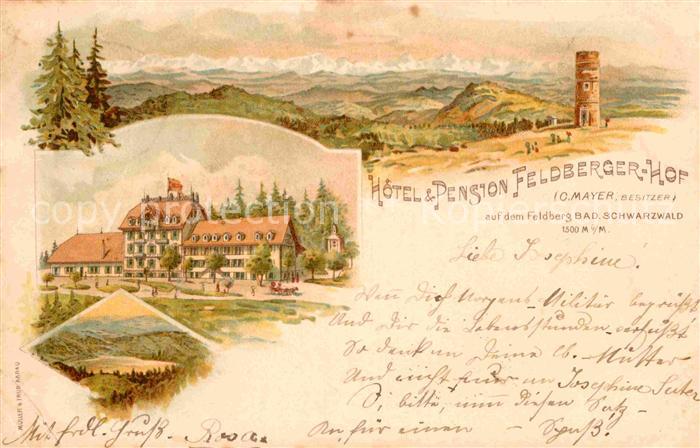 HÔTEL & PENSION FELDBERGER-HOF
(C. MAYER, BESITZER)
auf dem Feldberg BAD. SCHWARZWALD
1500 M ü/M.
Liebe Josephine!
Wenn Dich Morgens Militär begrüsst
Und Dir die Lebensstunden
So denk an Deine lb. Mutter
Und nicht an Josephine Suter
O, bitte, nimm diesen Satz
An für einen – Spaß
Mit frdl. Gruß. Rosa.
MÜLLER & TRÜB AARAU
copyright protection